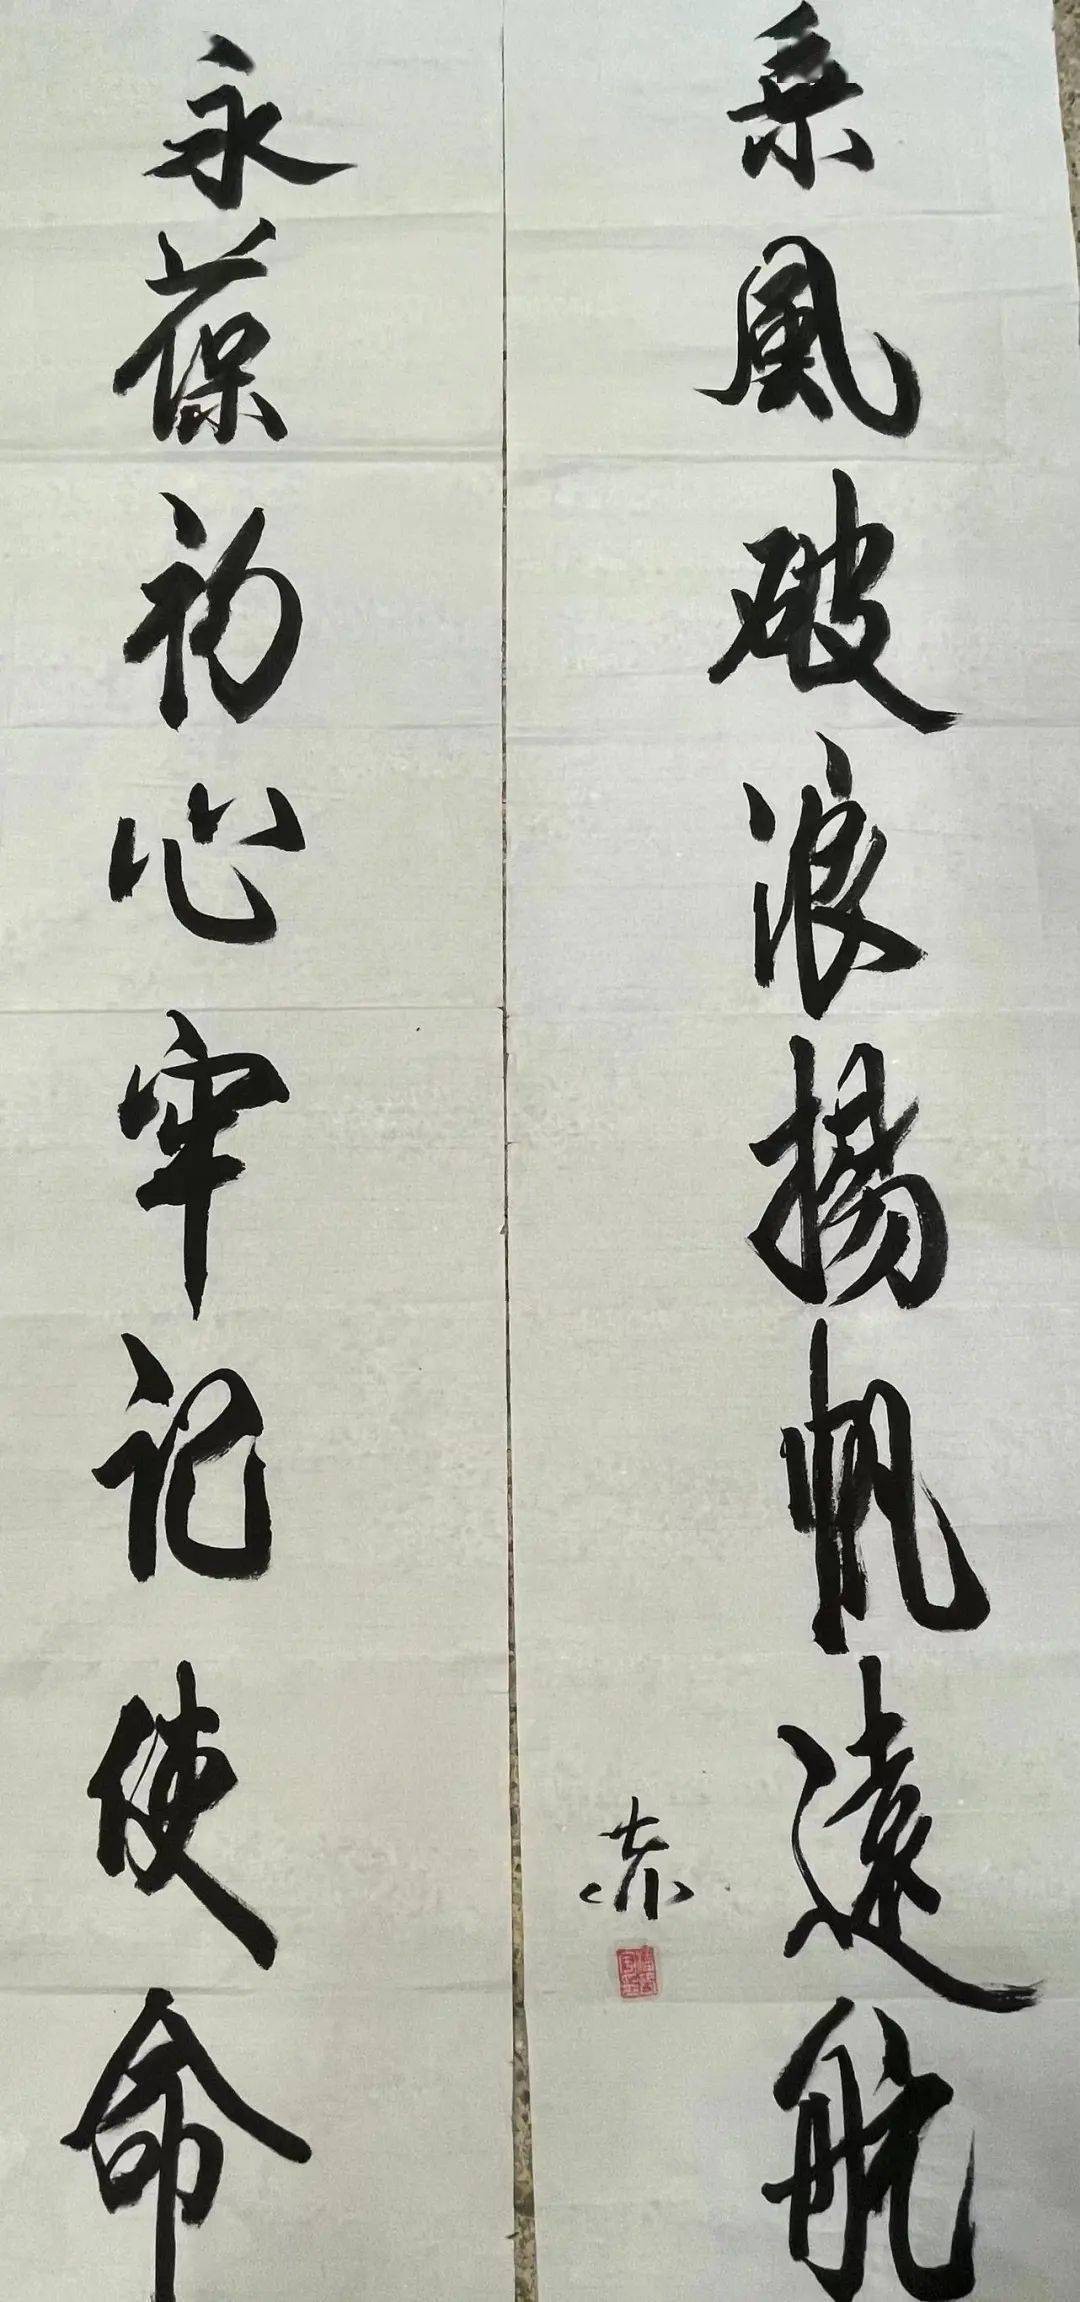 永葆初心牢記使命
乘風破浪揚帆遠航
赤